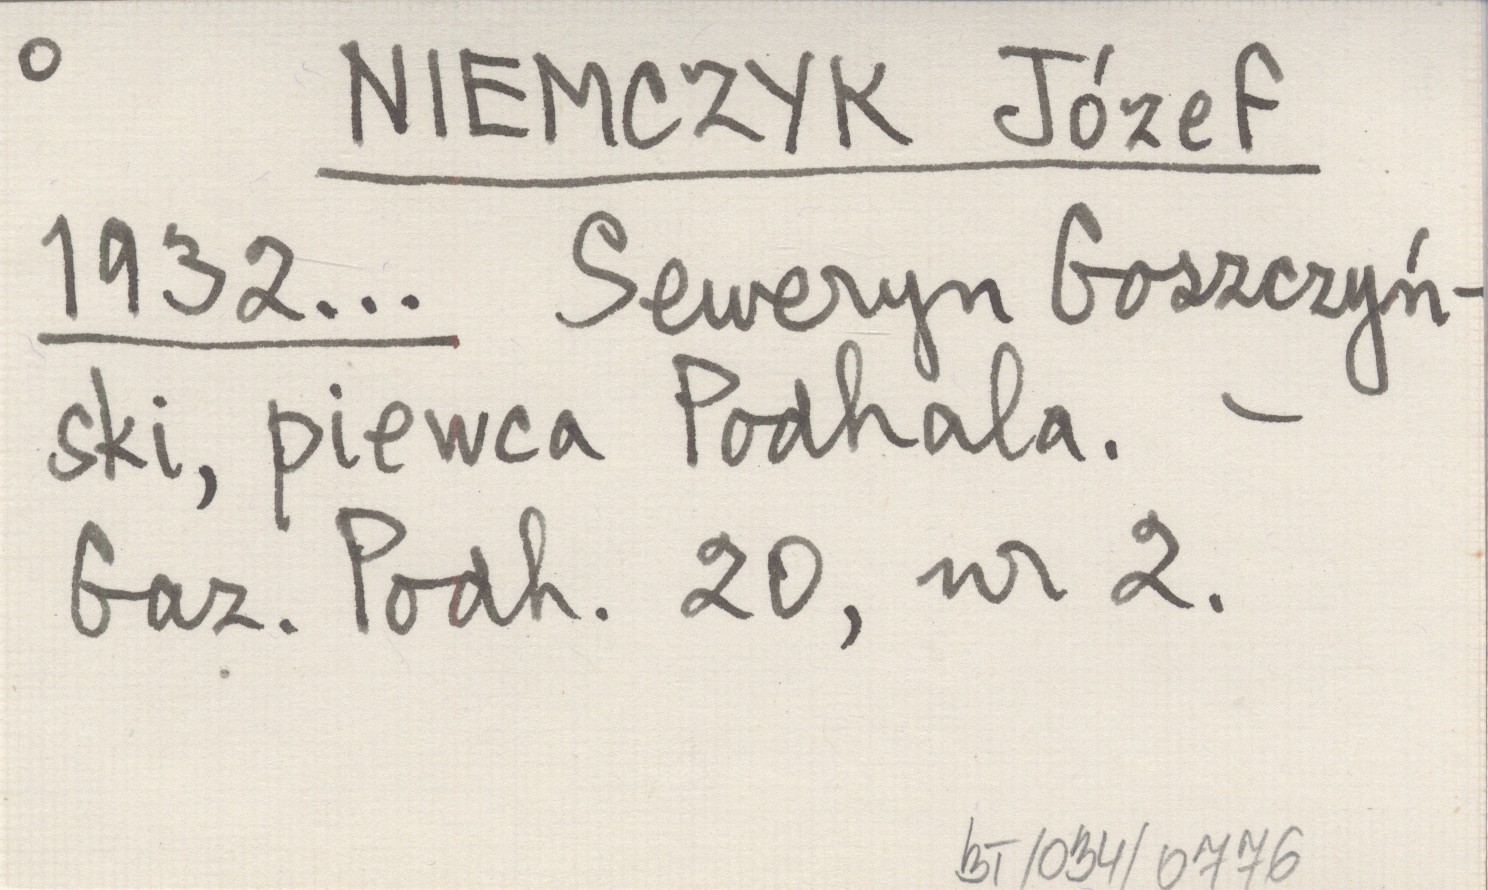 o NIEMCZYK Józef
1932... Seweryn Goszczyń-
ski, piewca Podhala. –
Gaz. Podh. 20, nr 2.
BT/034/0776